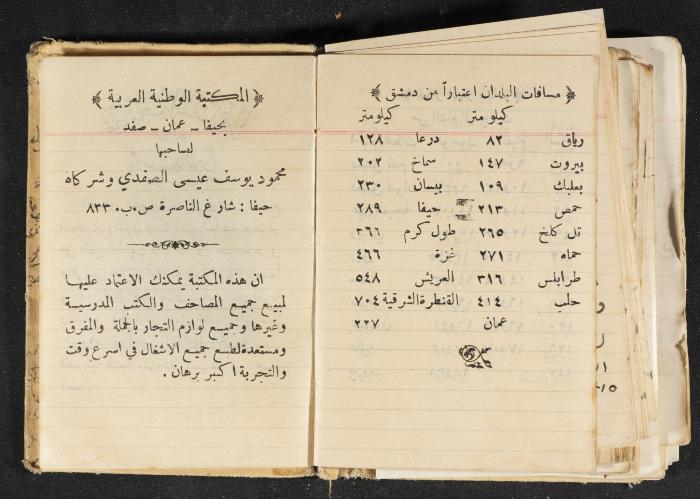 مسافات البلدان اعتباراً من دمشق
كيلو متر كيلو متر
رياق ٨٢ درعا ١٢٨
بيروت ١٤٧ سماخ ٢٠٢
بعلبك ١٠٩ بيسان ٢٣٠
حمص ٢١٣ حيفا ٢٨٩
تل كلخ ٢٦٥ طول كرم ٣٦٦
حماه ٢٧١ غزة ٤٦٦
طرابلس ٣١٦ العريش ٥٤٨
حلب ٤١٤ القنطرة الشرقية ٧٠٤
عمان ٢٢٧
المكتبة الوطنية العربية
بحيفا - عمان - صفد
لصاحبها
محمود يوسف عيسى الصفدي وشركاه
حيفا : شارع الناصرة ص.ب. ٨٣٣
ان هذه المكتبة يمكنك الاعتماد عليها
لمبيع جميع المصاحف والكتب المدرسية
وغيرها وجميع لوازم التجار بالجملة والمفرق
ومستعدة لطبع جميع الاشغال في اسرع وقت
والتجربة اكبر برهان .